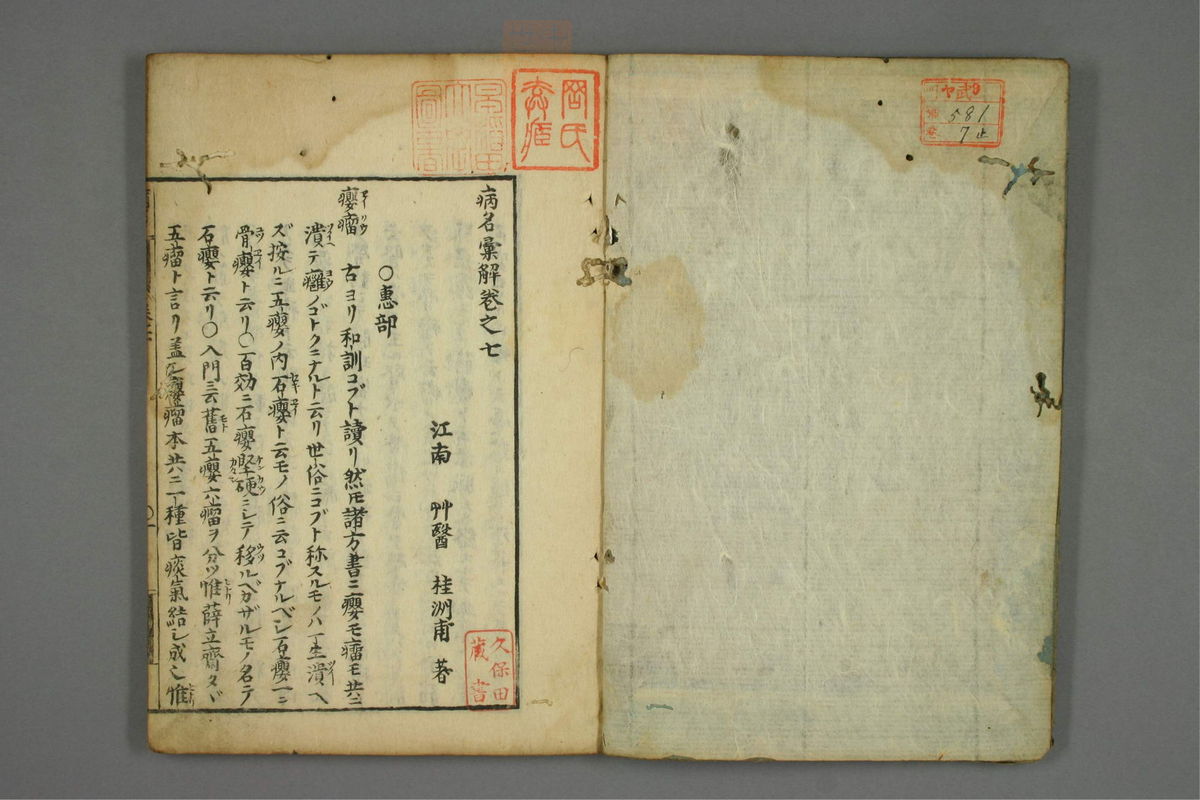 581
7止
病名彙解巻之七
江南 艸醫 桂洲甫 著
○惠部
癭瘤 古ヨリ和訓コブト讀リ然𪜈諸方書ニ癭モ瘤モ共ニ
潰テ癰ノゴトクニナルト云リ世俗ニコブト称スルモノハ一生潰ヘ
ズ按ルニ五癭ノ内石癭ト云モノ俗ニ云コブナルベシ石癭一ニ
骨癭ト云リ○百効ニ石癭堅硬ニシテ移ルベカザルモノ名テ
石癭ト云リ○入門ニ云舊五癭六瘤ヲ分ツ惟薛立齋タヾ
五瘤ト言リ盖シ癭瘤本共ニ一種皆痰氣結シ成ス惟
久保田
蔵書